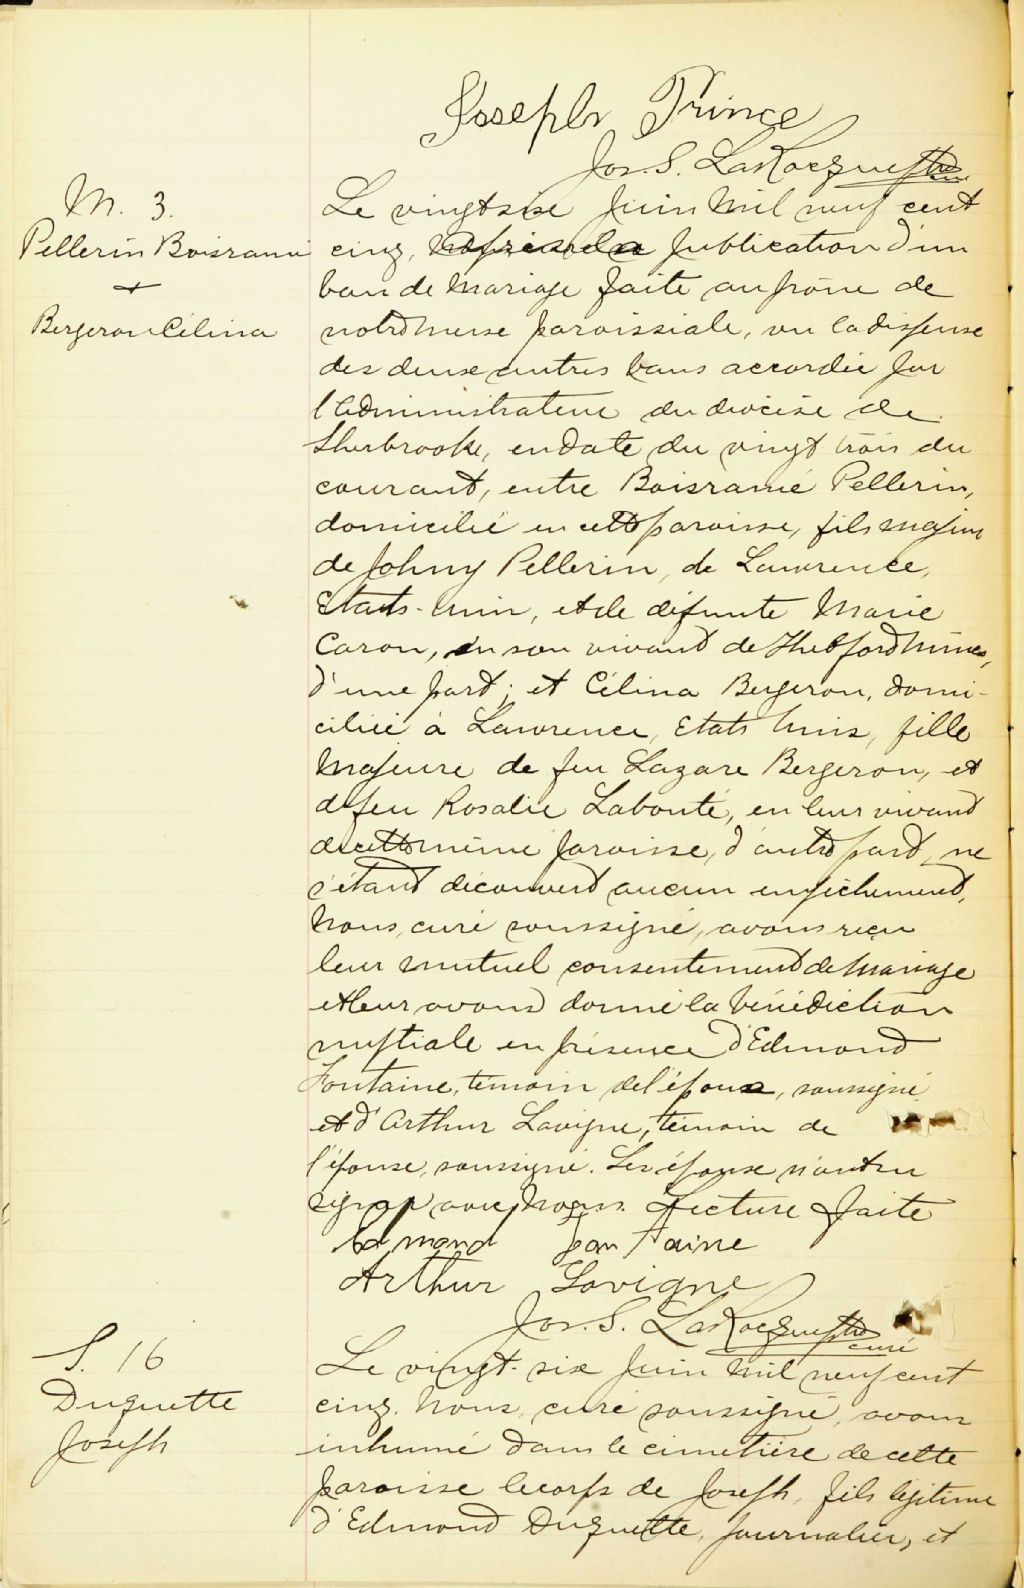 Joseph Prince
Jos. S. LaRocque ptre
M. 3.
Pellerin Boisramé
+
Bergeron Célina
Le vingt six Juin Mil neuf cent
cinq, publication d'un
ban de Mariage faite au prône de
notre messe paroissiale, vu la dispense
des deux autres bans accordée par
l'administrateur du diocèse de
Sherbrooke, en date du vingt trois du
courant, entre Boisramé Pellerin,
domicilié en cette paroisse, fils majeur
de Johny Pellerin, de Lawrence,
Etats-Unis, et de défunte Marie
Caron, en son vivant de Thetford Mines,
d'une part; et Célina Bergeron, domi-
ciliée à Lawrence, Etats Unis, fille
Majeure de feu Lazare Bergeron, et
de feu Rosalie Labonté, en leur vivant
de cette même paroisse, d'autre part, ne
s'étant découvert aucun empêchement,
Nous, curé soussigné, avons reçu
leur mutuel consentement de Mariage
et leur avons donné la bénédiction
nuptiale en présence d'Edmond
Fontaine, témoin de l'époux, soussigné
et d'Arthur Lavigne, témoin de
l'épouse, soussigné. Les époux n'ont su
signer avec Nous. Lecture faite
Edmond Fontaine
Arthur Lavigne
Jos. S. LaRocque ptre
curé
S. 16
Duquette
Joseph
Le vingt-six Juin Mil neuf cent
cinq. Nous, curé soussigné, avons
inhumé dans le cimetière de cette
paroisse le corps de Joseph, fils légitime
d'Edmond Duquette, journalier, et